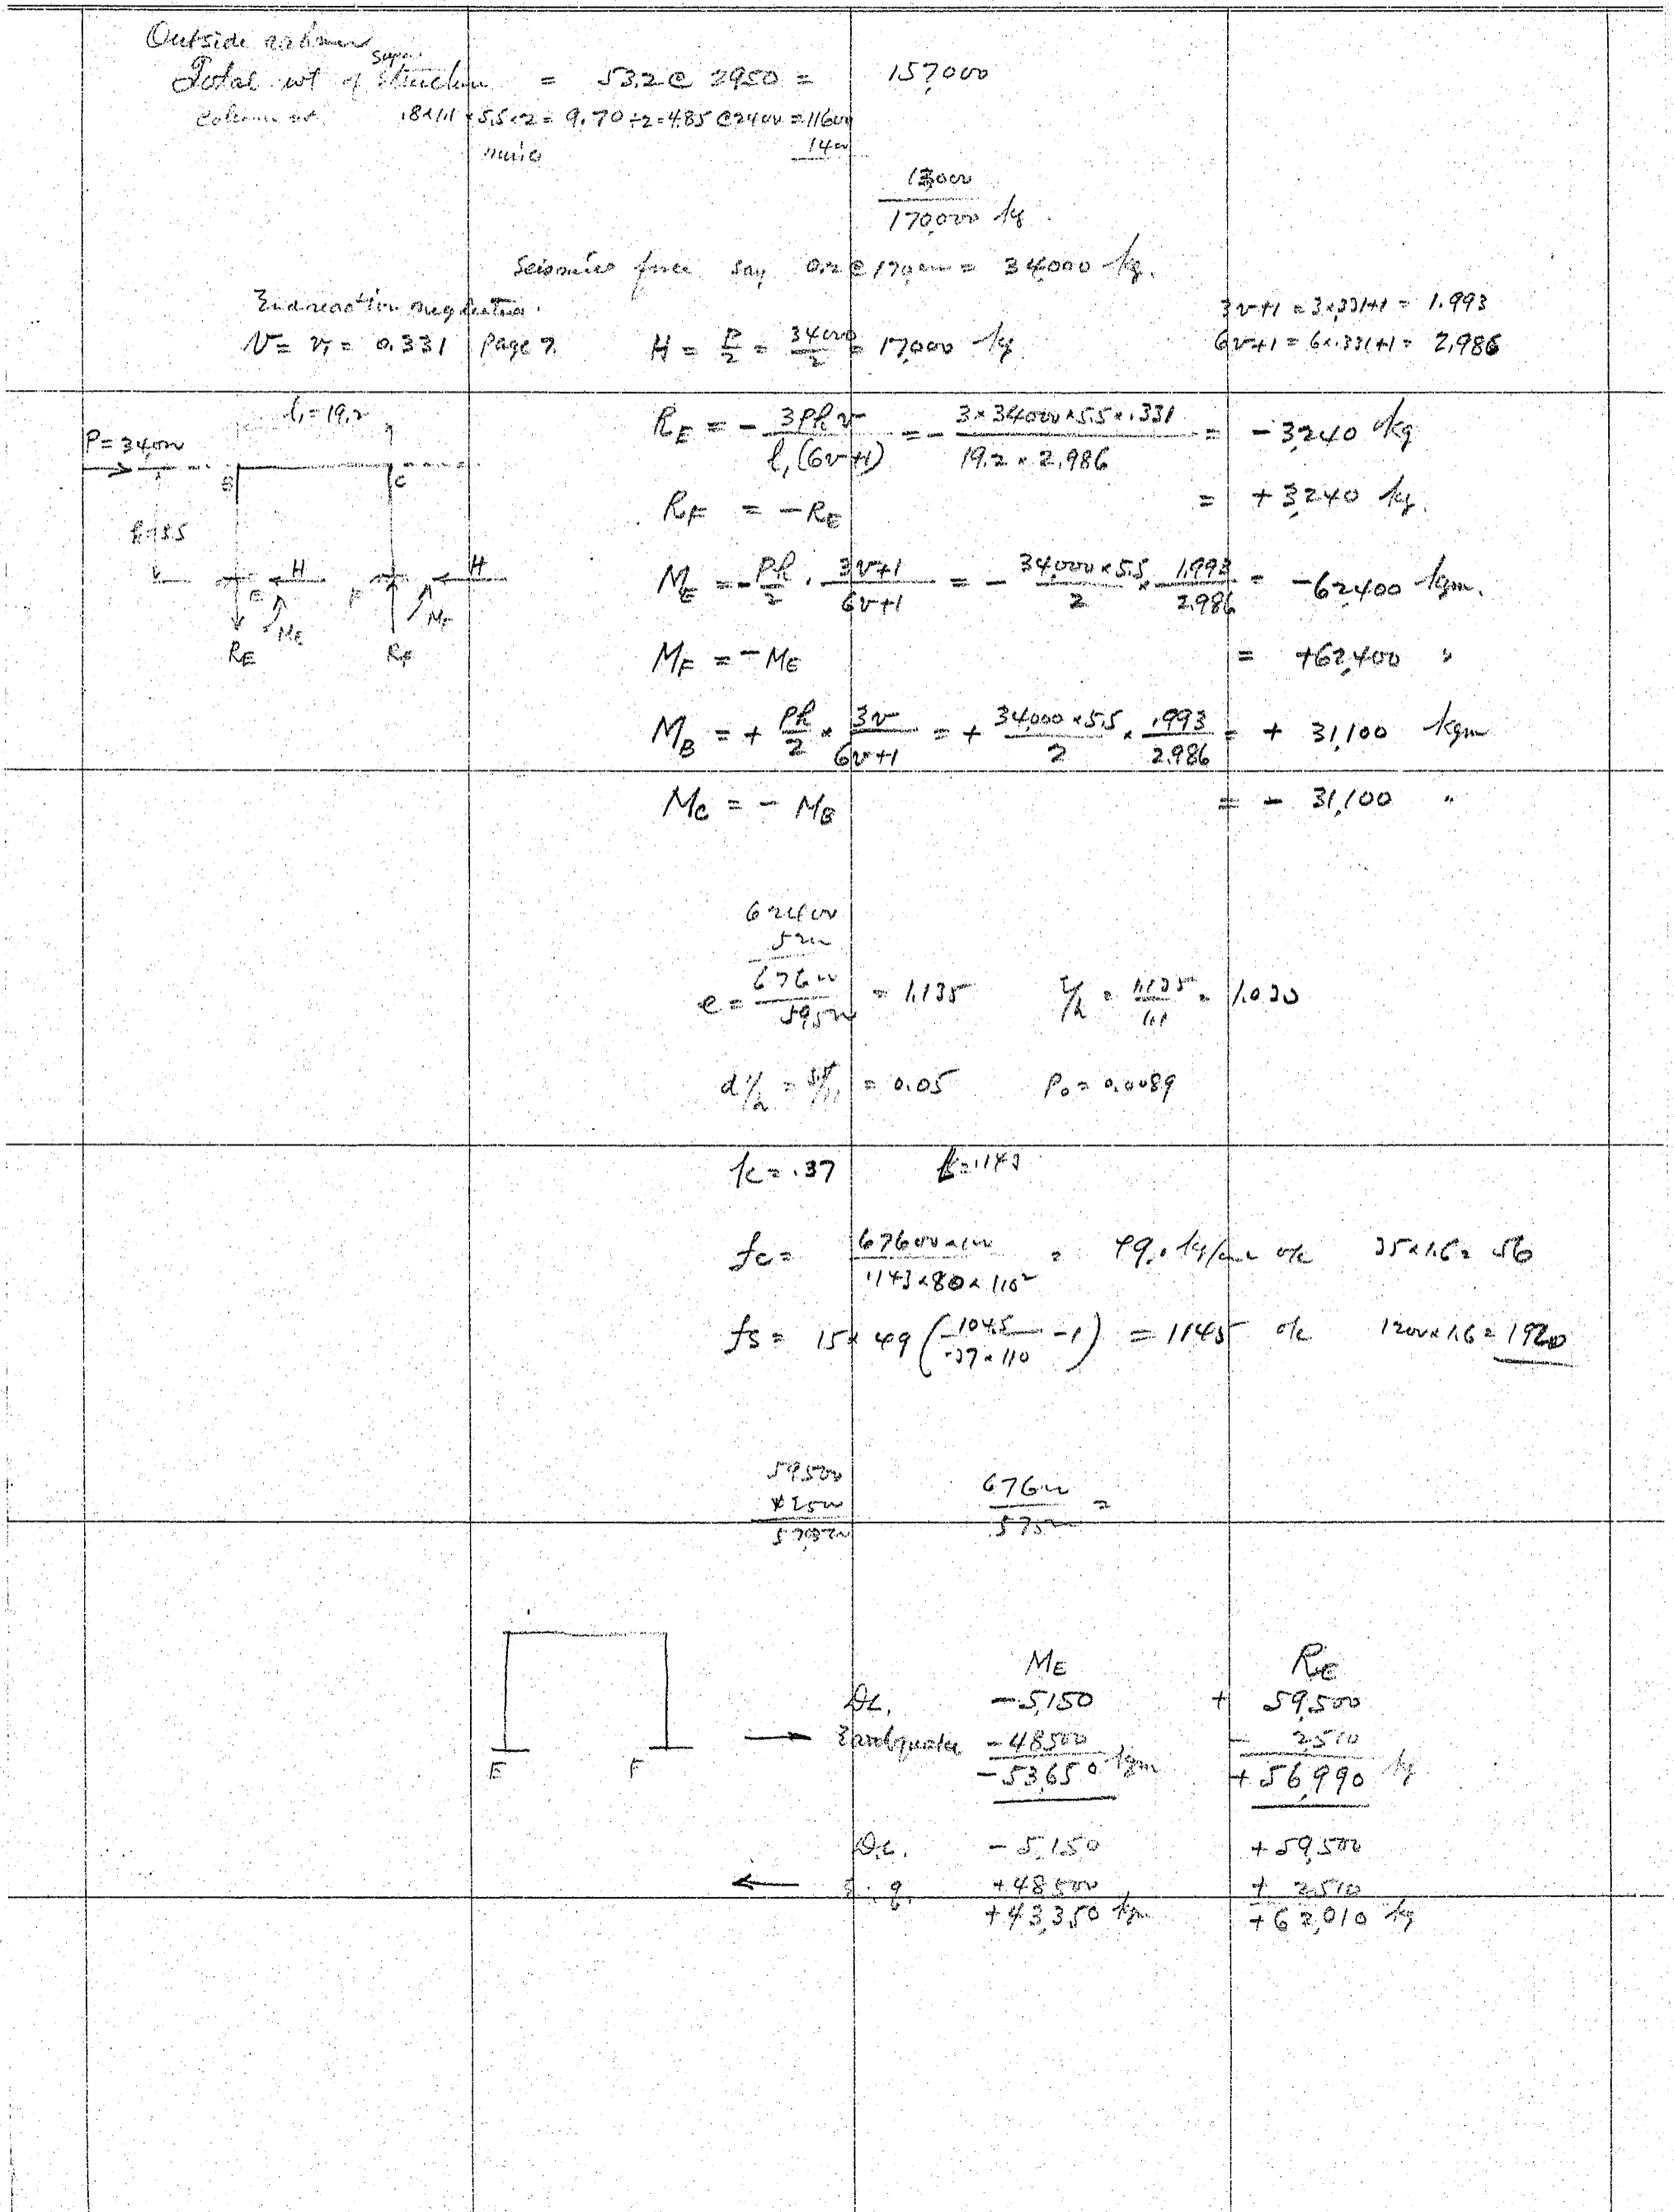 Outside column
Total wt of superstructure = 53.2 @ 2950 = 157,000
Column wt. .8×1.1×5.5×2 = 9.70 ÷ 2 = 4.85 @ 2400 = 11600
1400
13,000
170,000 kg.
Seismic force say 0.2 @ 170,000 = 34,000 kg.
End reaction neglected.
3v+1 = 3×.331+1 = 1.993
V = v₁ = 0.331 Page 7. H = P/2 = 34000/2 = 17,000 kg
6v+1 = 6×.331+1 = 2.986
l₁ = 19.2
P = 34,000
B C
h = 5.5
H H
E F
ME MF
RE RF
RE = - 3Phv / l₁(6v+1) = - 3×34000×5.5×.331 / 19.2×2.986 = - 3,240 kg
RF = - RE = + 3,240 kg.
ME = - Ph/2 · 3v+1 / 6v+1 = - 34,000×5.5 / 2 × 1.993 / 2.986 = - 62,400 kgm.
MF = - ME = + 62,400 "
MB = + Ph/2 × 3v / 6v+1 = + 34,000×5.5 / 2 × .993 / 2.986 = + 31,100 kgm
MC = - MB = - 31,100 "
62400
5200
e = 67600 / 59500 = 1.135 e/h = 1.135 / 1.1 = 1.030
d'/h = 5.5/110 = 0.05 P₀ = 0.0089
k = .37 .1143
fc = 67600×100 / .1143×80×110² = 49. kg/cm² ok 35×1.6 = 56
fs = 15×49 ( 104.5 / .37×110 - 1 ) = 1145 ok 1200×1.6 = 1920
59500
67600 / 575 =
ME RE
DL. - 5,150 + 59,500
→ Earthquake - 48500 - 2,510
- 53,650 kgm + 56,990 kg
E F
D.L. - 5,150 + 59,500
← + 48,500 + 2,510
+ 43,350 kgm + 62,010 kg